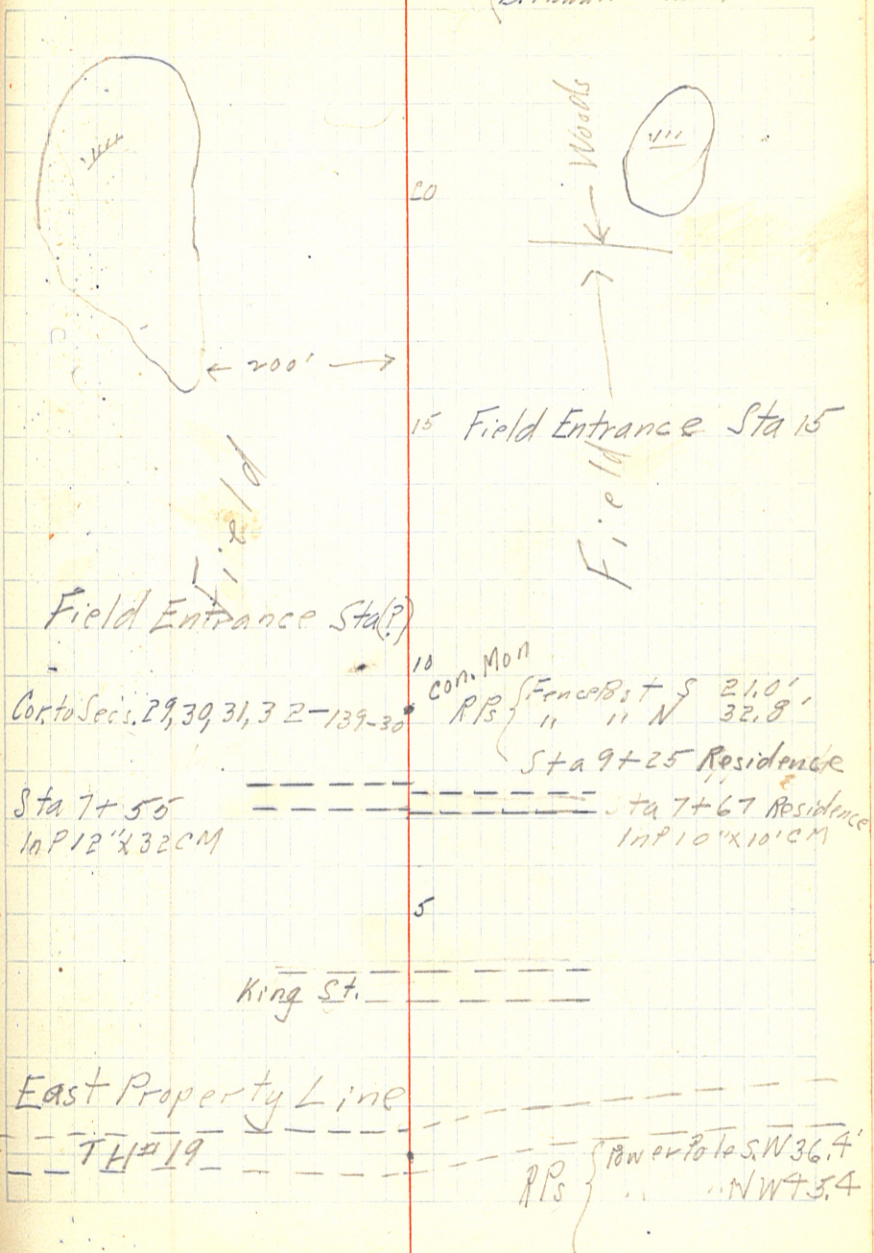 Woods
20
← 200' →
15 Field Entrance Sta 15
Field
Field
Field Entrance Sta(?)
10
Con. Mon
Cor. to Secs. 29, 30, 31, 32-139-30
RPs { Fence Post S 21.0'
" " N 32.8'
Sta 9+25 Residence
Sta 7+55
InP 12"x32CM
Sta 7+67 Residence
InP 10"x10'CM
5
King St.
East Property Line
TH#19
RPs { Power Pole S.W 36.4'
" " NW 43.4